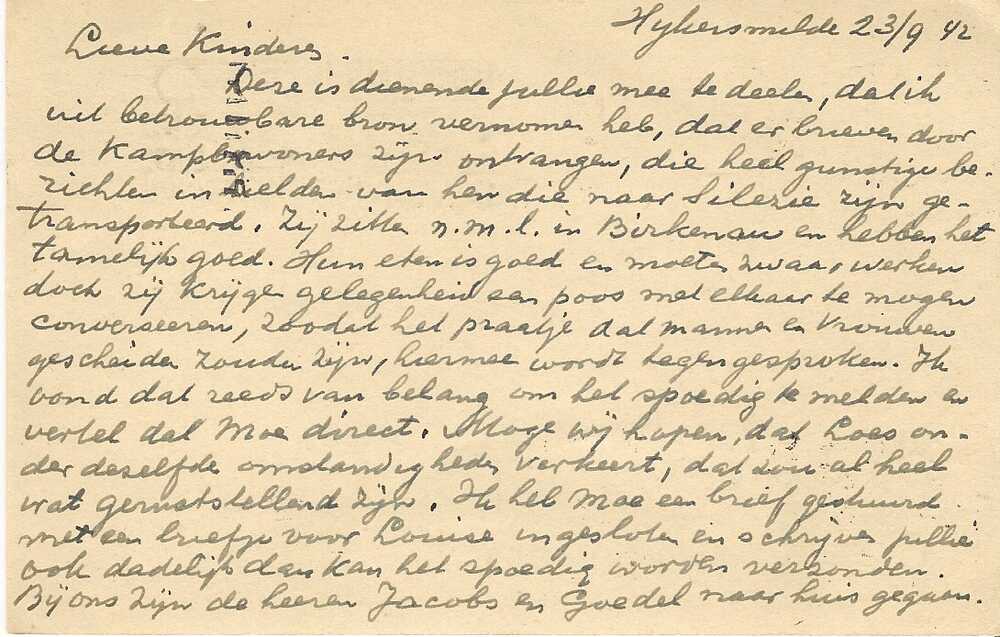 Hykersmilde 23/9 42
Lieve Kinderen.
Deze is dienende jullie mee te deelen, dat ik
uit betrouwbare bron vernomen heb, dat er brieven door
de Kampbewoners zijn ontvangen, die heel gunstige be-
richten inmelden van hen die naar Silezie zijn ge-
transporteerd. Zij zitten n.m.l. in Birkenau en hebben het
tamelijk goed. Hun eten is goed en moeten zwaar werken
doch zij krijgen gelegenheid een poos met elkaar te mogen
converseeren, zoodat het praatje dat mannen en vrouwen
gescheiden zouden zijn, hiermee wordt tegengesproken. Ik
vond dat reeds van belang om het spoedig te melden en
vertel dat Moe direct. Moge wij hopen, dat Loes on-
der deselfde omstandigheden verkeert, dat zou al heel
wat geruststellend zijn. Ik heb Moe een brief gestuurd
met een briefje voor Louise ingesloten en schrijven jullie
ook dadelijk dan kan het spoedig worden verzonden.
Bij ons zijn de heeren Jacobs en Goedel naar huis gegaan.